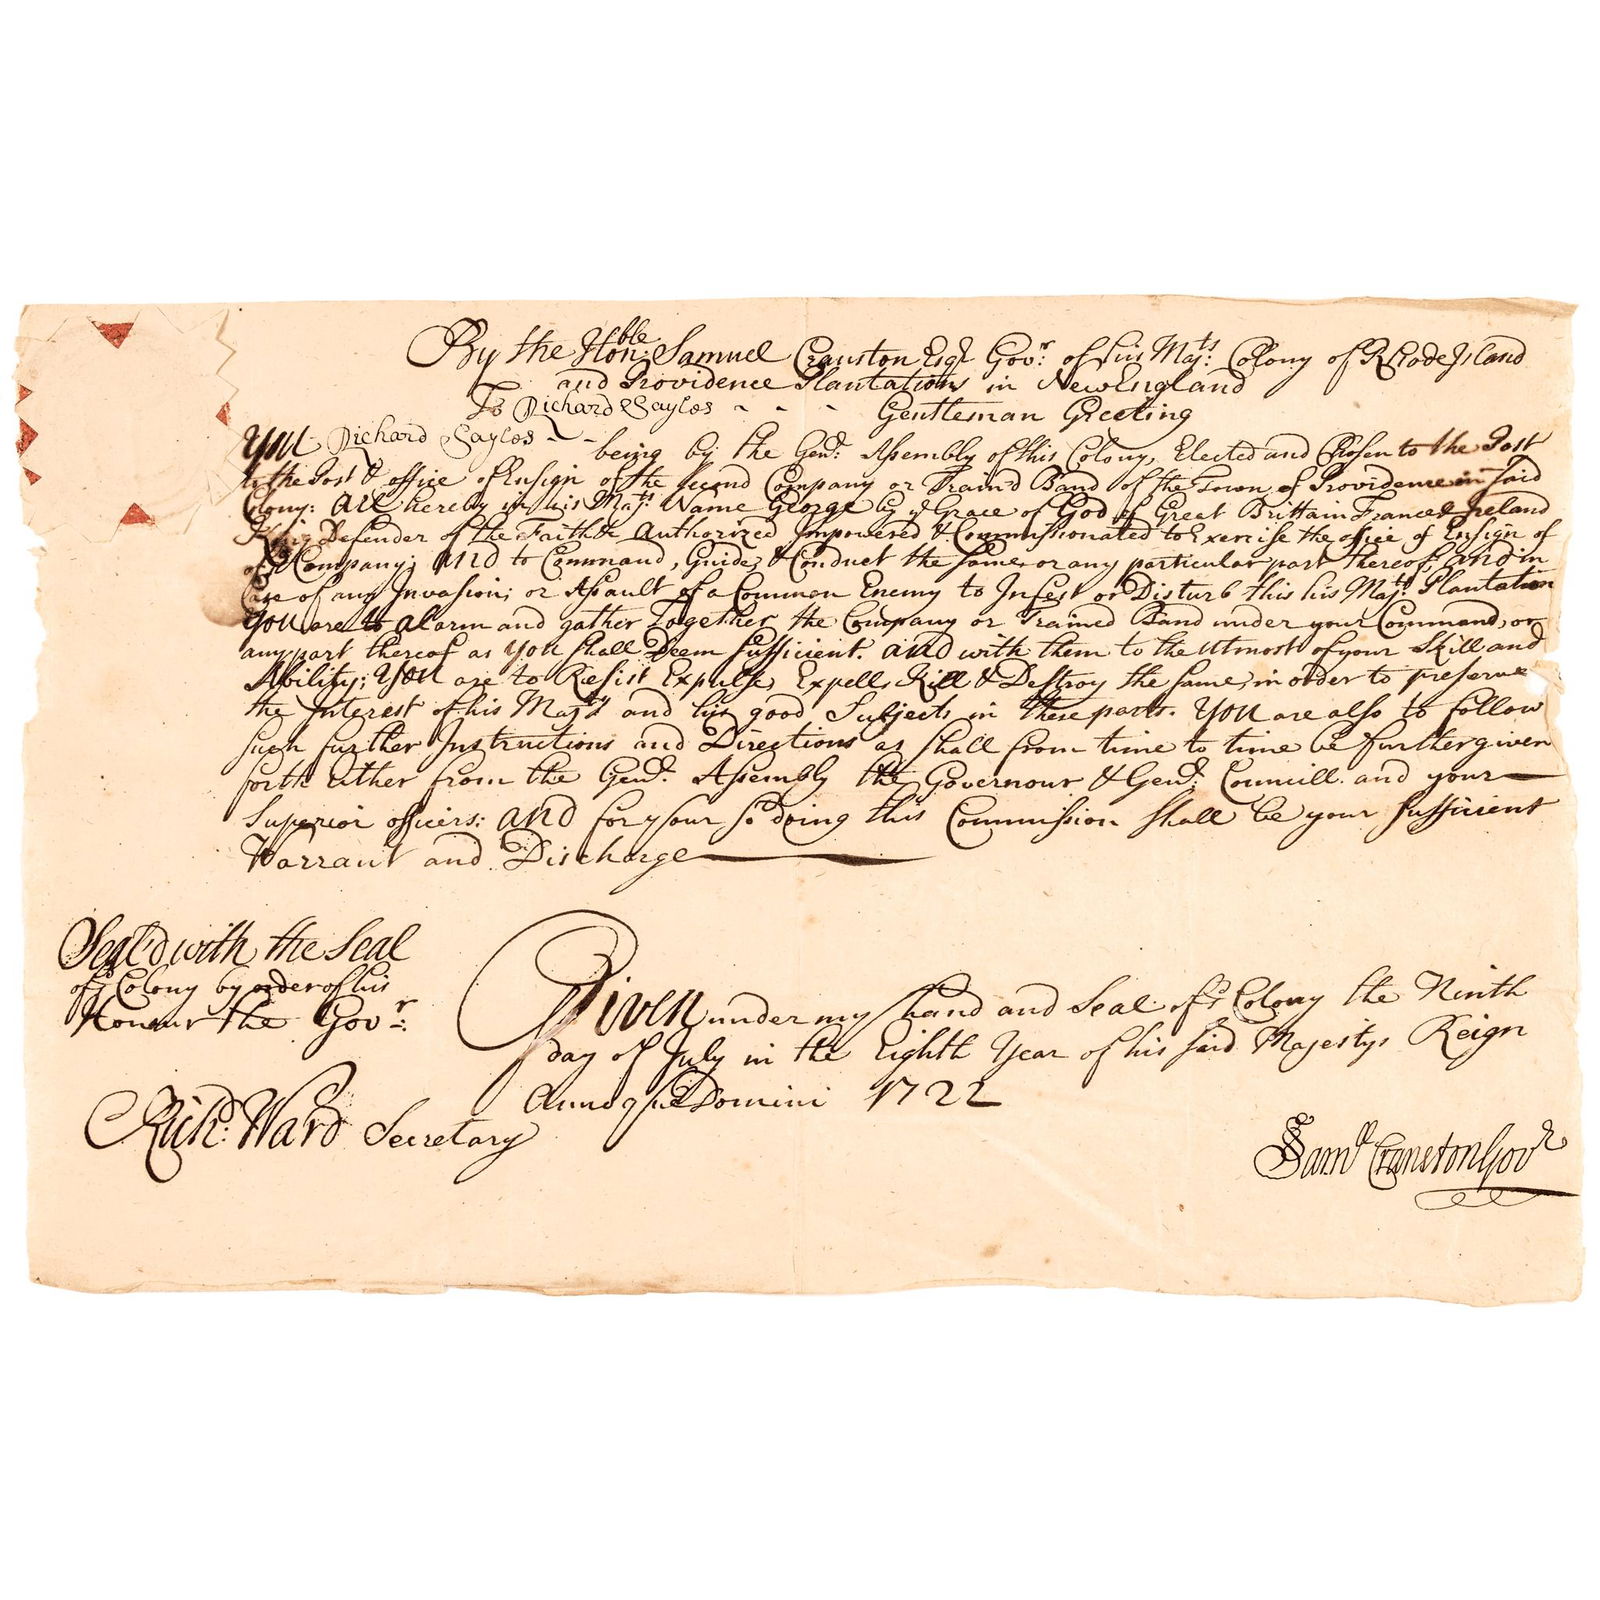 By the Honble: Samuel Cranston Esqr Govr: of his Majts: Colony of Rhode Island
and Providence Plantations in New England
To Richard Sayles - - - Gentleman Greeting
You Richard Sayles - - being by the Genll: Assembly of this Colony, Elected and Chosen to the Post
to the Post & office of Ensign of the second Company or Train'd Band of the Town of Providence in said
Colony: are hereby in his Majts: Name George by ye Grace of God of Great Brittain France & Ireland
King Defender of the Faith & Authorized Impowered & Commissionated to Exercise the office of Ensign of
of sd Company; and to Command, Guide, & Conduct the same or any particular part thereof, and in
Case of any Invasion; or Assault of a Common Enemy to Infest or Disturb this his Majts: Plantation
You are to alarm and gather Together the Company or Trained Band under your Command, or
any part thereof as you shall Deem sufficient. and with them to the utmost of your Skill and
Ability; You are to Resist Expulse, Expell, Kill & Destroy the same, in order to preserve
the Interest of his Majts and his good Subjects in these parts. You are also to follow
such further Instructions and Directions as shall from time to time be further given
forth Either from the Genll: Assembly the Governour & Genll: Councill. and your
Superior officers: and for your so doing this Commission shall be your sufficient
Warrant and Discharge
Seal'd with the Seal
of ye Colony by order of his
Honour the Govr:
Given under my hand and Seal of sd Colony the Ninth
day of July in the Eighth Year of his said Majestys Reign
Annoque Domini 1722
Richd: Ward Secretary
Samll Cranston Govr